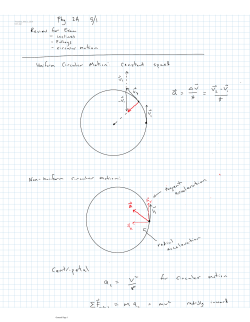 Phy 2A 9/1
Review for Exam
- inclines
- Pulleys
- Circular Motion
Uniform Circular Motion: Constant speed
a = Δv / t = v₂ - v₁ / t
Non-uniform circular Motion:
tangent
acceleration
radial
acceleration
Centripetal
a = v² / r for circular motion
ΣF = m a = must radially inward